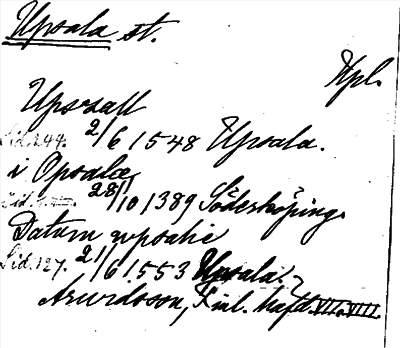 Upsala st.
Upl.
Upssall
Sid. 249. 2/6 1548 Upsala.
i Opsalæ
28/10 1389 Söderköping.
Datum vpsalie
Sid. 127. 21/6 1553 Upsala.
Arwidsson, Finl. häfd. VII. VIII.